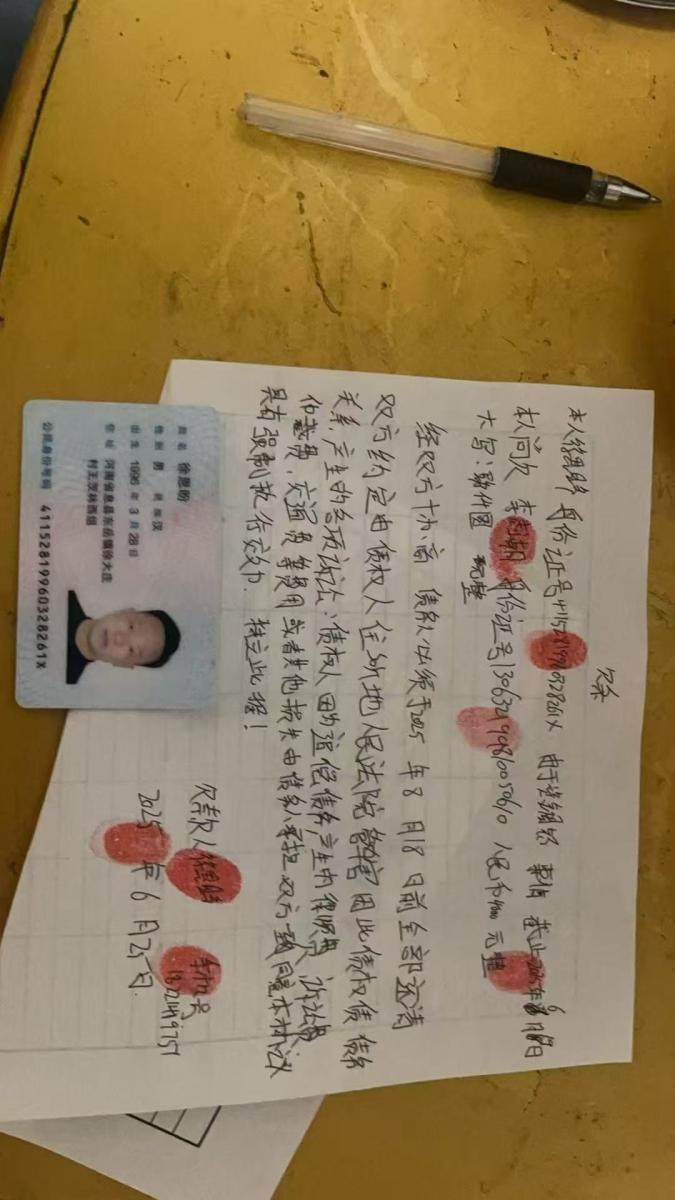 欠条
本人徐恩盼 身份证号41152819960328261X 由于 事情 截止2025年6月18日
本人向欠 李 身份证号130634 人民币 元整
大写: 元整
经双方 商 债务人必须于2025年8月18日前全部还清
双方约定由债权人住所地人民法院管辖因此债权债务
关系,产生的各项诉讼;债权人因为追偿债务产生的律师费、诉讼费
仲裁费、交通费等费用或者其他损失由债务人承担.双方一致同意本协议
具有强制执行效力.特立此据!
欠款人徐恩盼
手机号
2025年6月25日.
姓名 徐恩盼
性别 男 民族 汉
出生 1996年3月28日
住址 河南省息县东岳镇徐大庄
村王京林西组
公民身份号码 41152819960328261X